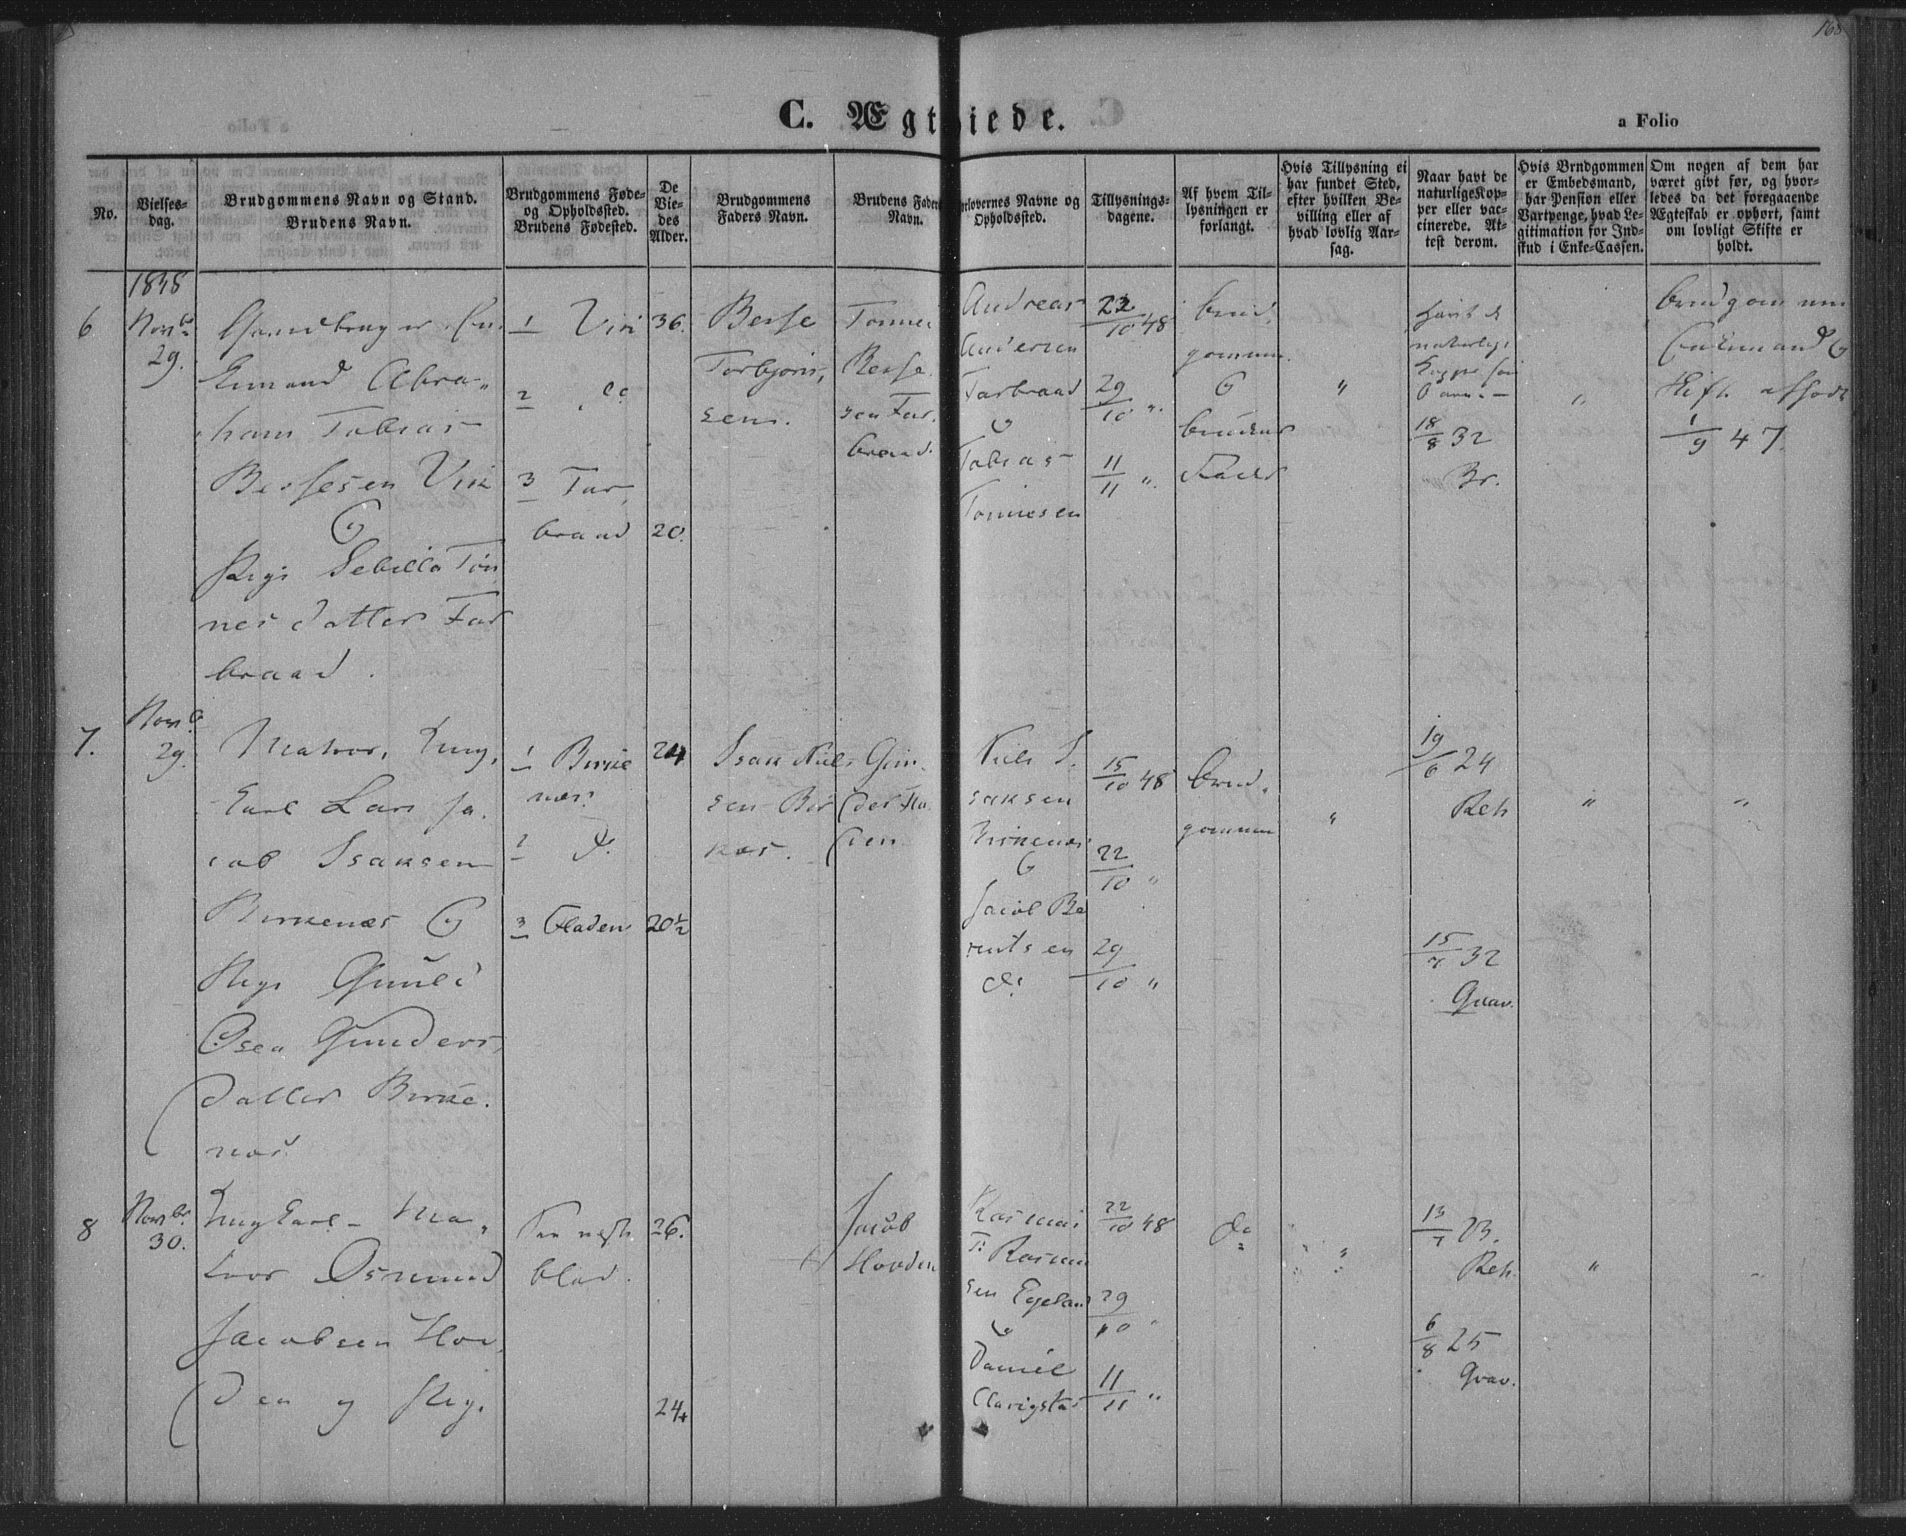 168
C. Ægteviede.
a Folio
No.
Vielses-
dag.
Brudgommens Navn og Stand.
Brudens Navn.
Brudgommens Føde-
og Opholdssted.
Brudens Fødested.
De
Vie-
des
Alder.
Brudgommens
Faders Navn.
Brudens Faders
Navn.
Forlovernes Navne og
Opholdssted.
Tillysnings-
dagene.
Af hvem Til-
lysningen er
forlangt.
Hvis Tillysning ei
har fundet Sted,
efter hvilken Be-
villing eller af
hvad lovlig Aar-
sag.
Naar havt de
naturlige Kop-
per eller vac-
cinerede. At-
test derom.
Hvis Brudgommen
er Embedsmand,
har Pension eller
Vartpenge, hvad Le-
gitimation for Ind-
skud i Enke-Cassen.
Om nogen af dem har
været givt før, og hvor-
ledes da det foregaaende
Ægteskab er ophørt, samt
om lovligt Skifte er
holdt.
1848
6
Novbr
29.
Gaardbruger En-
kemand Abra-
ham Tobias
Bessesen Viri
&
Pige Sebilla Tøn
nesdatter Far
braad.
1 Viri
2 do
3 Far
braad
36.
20.
Besse
Torbjørn,
sen.
Tønnes
Besse
sen Far,
braad.
Andreas
Andersen
Farbraad
&
Tobias
Tønnesen
22/10 48
29/10 "
11/11 "
brud,
gommen
&
brudens
Fader
"
Havt de
naturlige
Kopper
18/8 32
Br.
"
brudgommen
Enkemand &
Skifte afholdt
1/9 47.
7.
Novb
29.
Matros, Ung,
Carl Lars Ja-
cob Isaksen
Birkenæs &
Pige Gunild
Osea Gunders,
datter Birke-
næs.
1 Birke
næs
2 d.
3 Fladen
24
20½
Isak Niel
sen Bir
kæs.
Gun-
der Fla
den
Niels I.
saksen
Birkenæs
&
Jacob Be
rentsen
do
15/10 48
22/10 "
29/10 "
brud,
gommen
"
19/6 24
Reh
15/7 32
Grav.
"
"
8
Novbr.
30.
Ung Carl - Ma,
tros Osmund
Jacobsen Hov
den og Pige
blad.
26.
24
Jacob
Hovden
Rasmus
T. Rasmu
sen Egeland
&
Daniel
22/10 48
29/10 "
11/11 "
do
"
13/7 23.
Reh.
6/8 25
Grav.
"